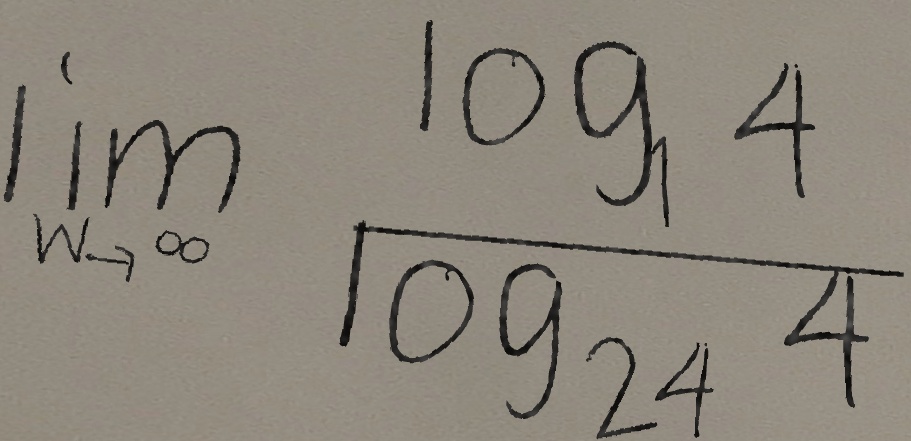 lim w→∞ log₁ 4
log₂₄ 4